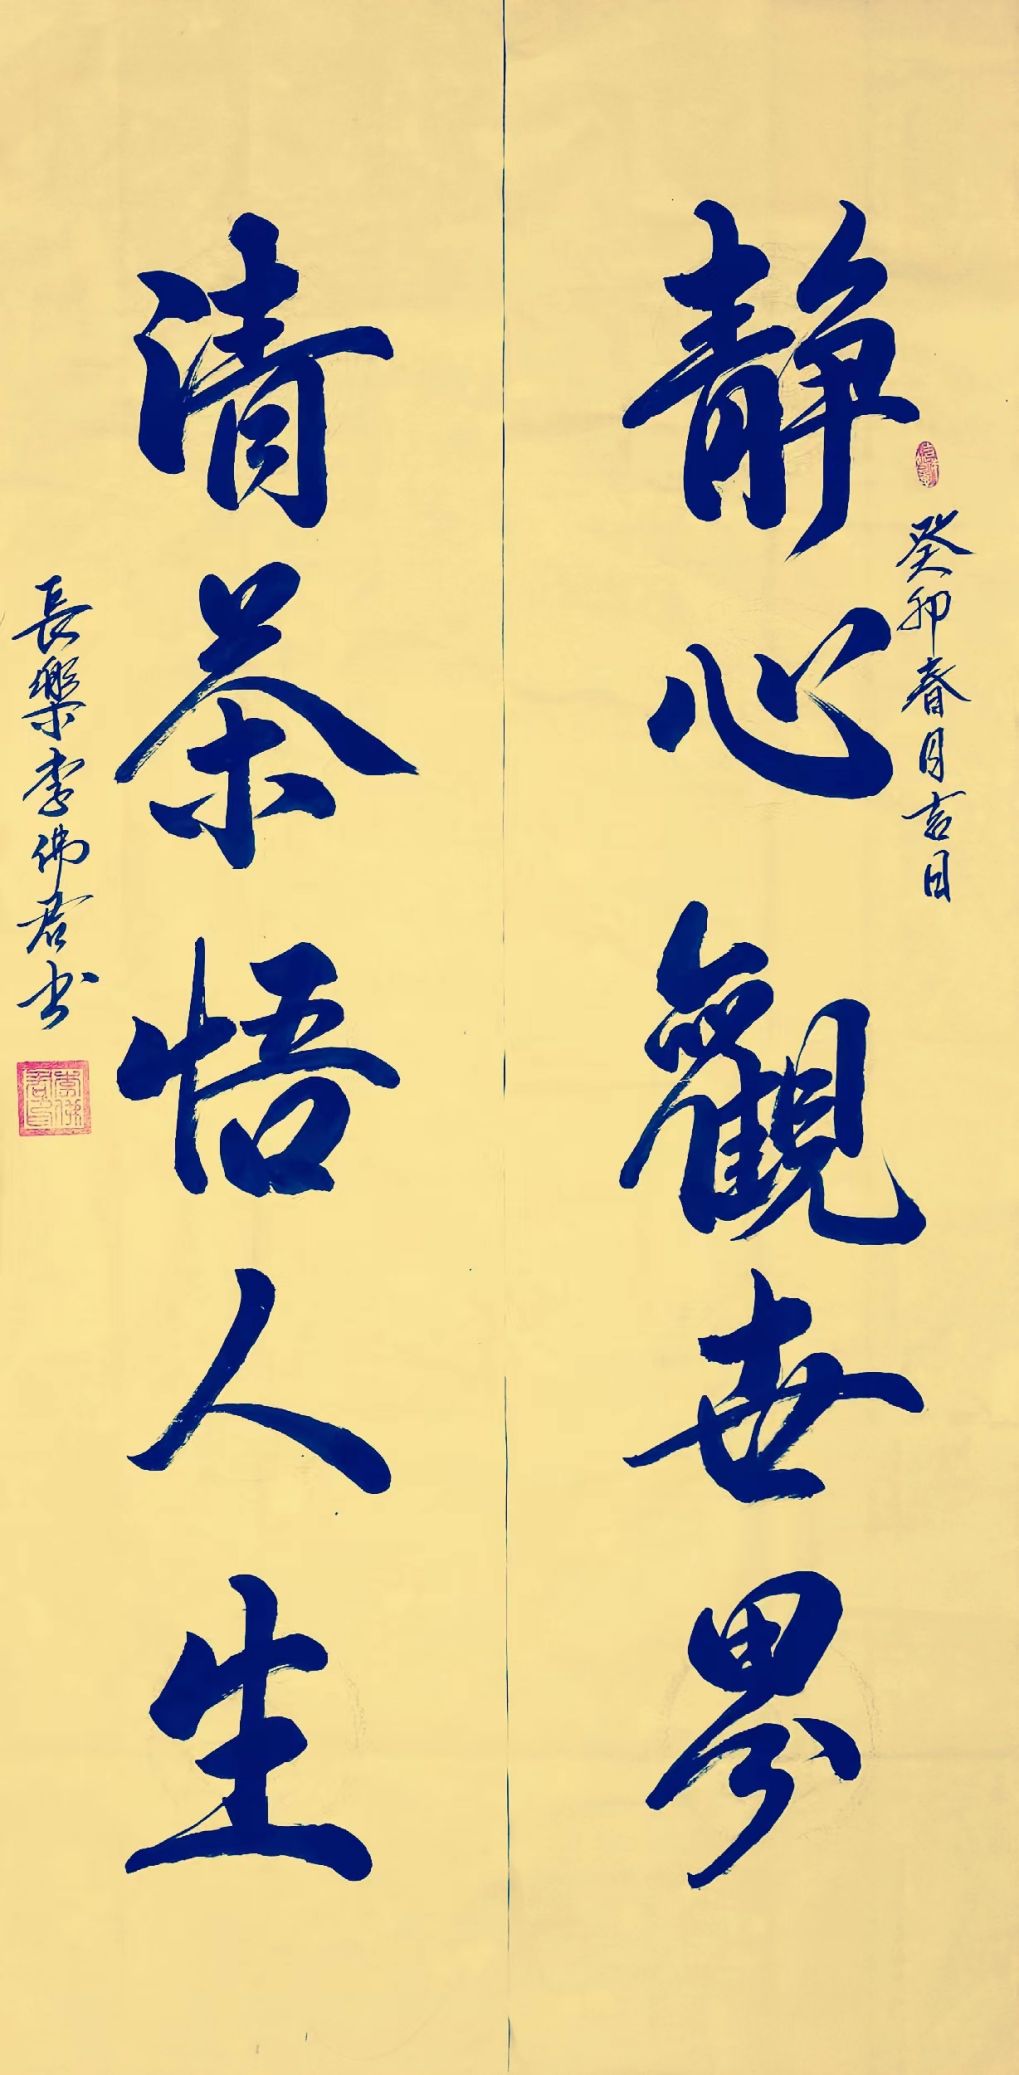 静心觀世界
癸卯春月吉日
清茶悟人生
長樂李佛君书